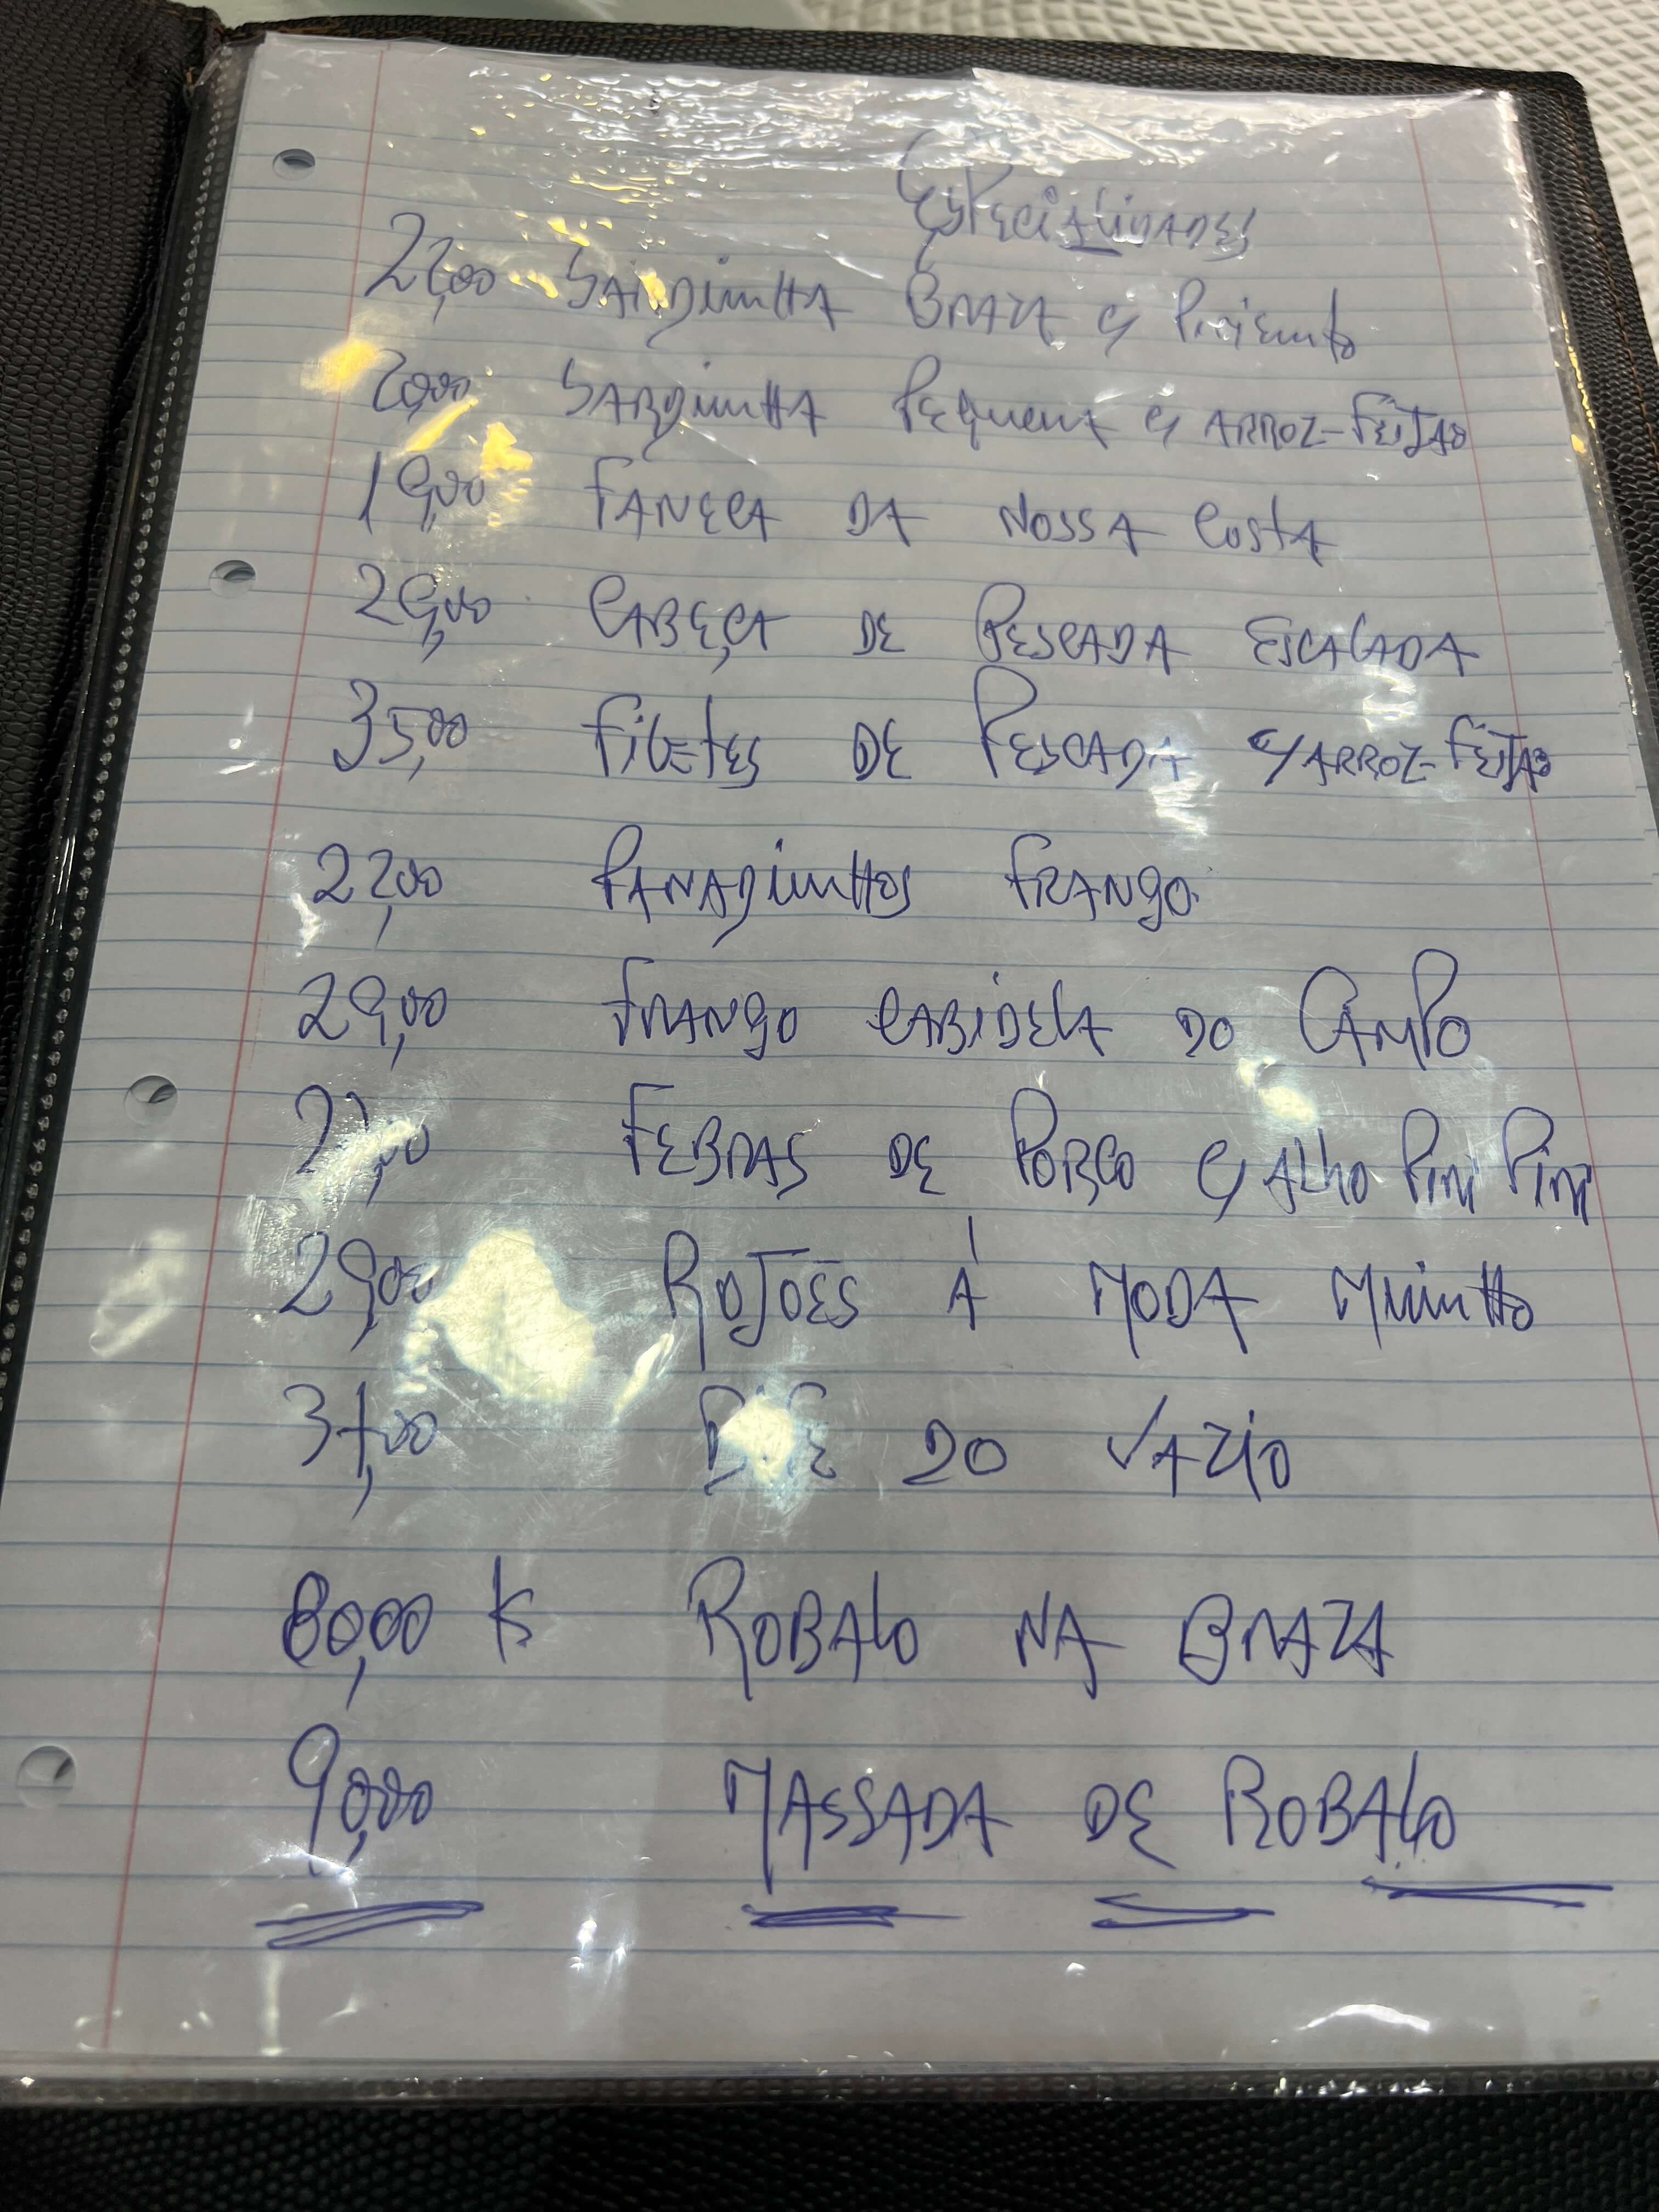 Especialidades
22,00 Sardinha Braza c/ Pimento
20,00 Sardinha Pequena c/ Arroz-Feijao
19,00 Faneca da Nossa Costa
29,00 Cabeça de Pescada Escalada
35,00 Filetes de Pescada c/ Arroz-Feijao
22,00 Panadinhos Frango
29,00 Frango Cabidela do Campo
Febras de Porco c/ Alho Piri Piri
29,00 Rojoes á Moda Minho
Bife do Vazio
80,00 K Robalo na Braza
90,00 Massada de Robalo